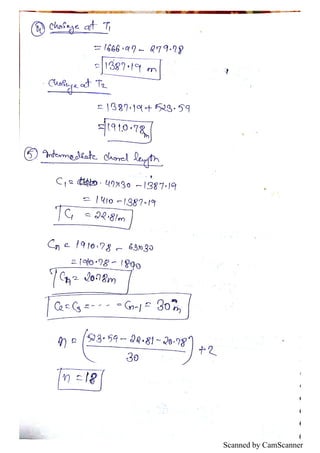 ④ chainage at T₁
= 1666.97 - 279.78
= 1387.19 m
Chainage at T₂
= 1387.19 + 523.59
= 1910.78 m
⑤ Intermediate chord length
C₁ = 47×30 - 1387.19
= 1410 - 1387.19
C₁ = 22.81m
Cn = 1910.78 - 63×30
= 1910.78 - 1890
Cn = 20.78m
C₂ = C₃ = - - - = Cn-1 = 30 m
n = (523.59 - 22.81 - 20.78 / 30) + 2
n = 18
Scanned by CamScanner